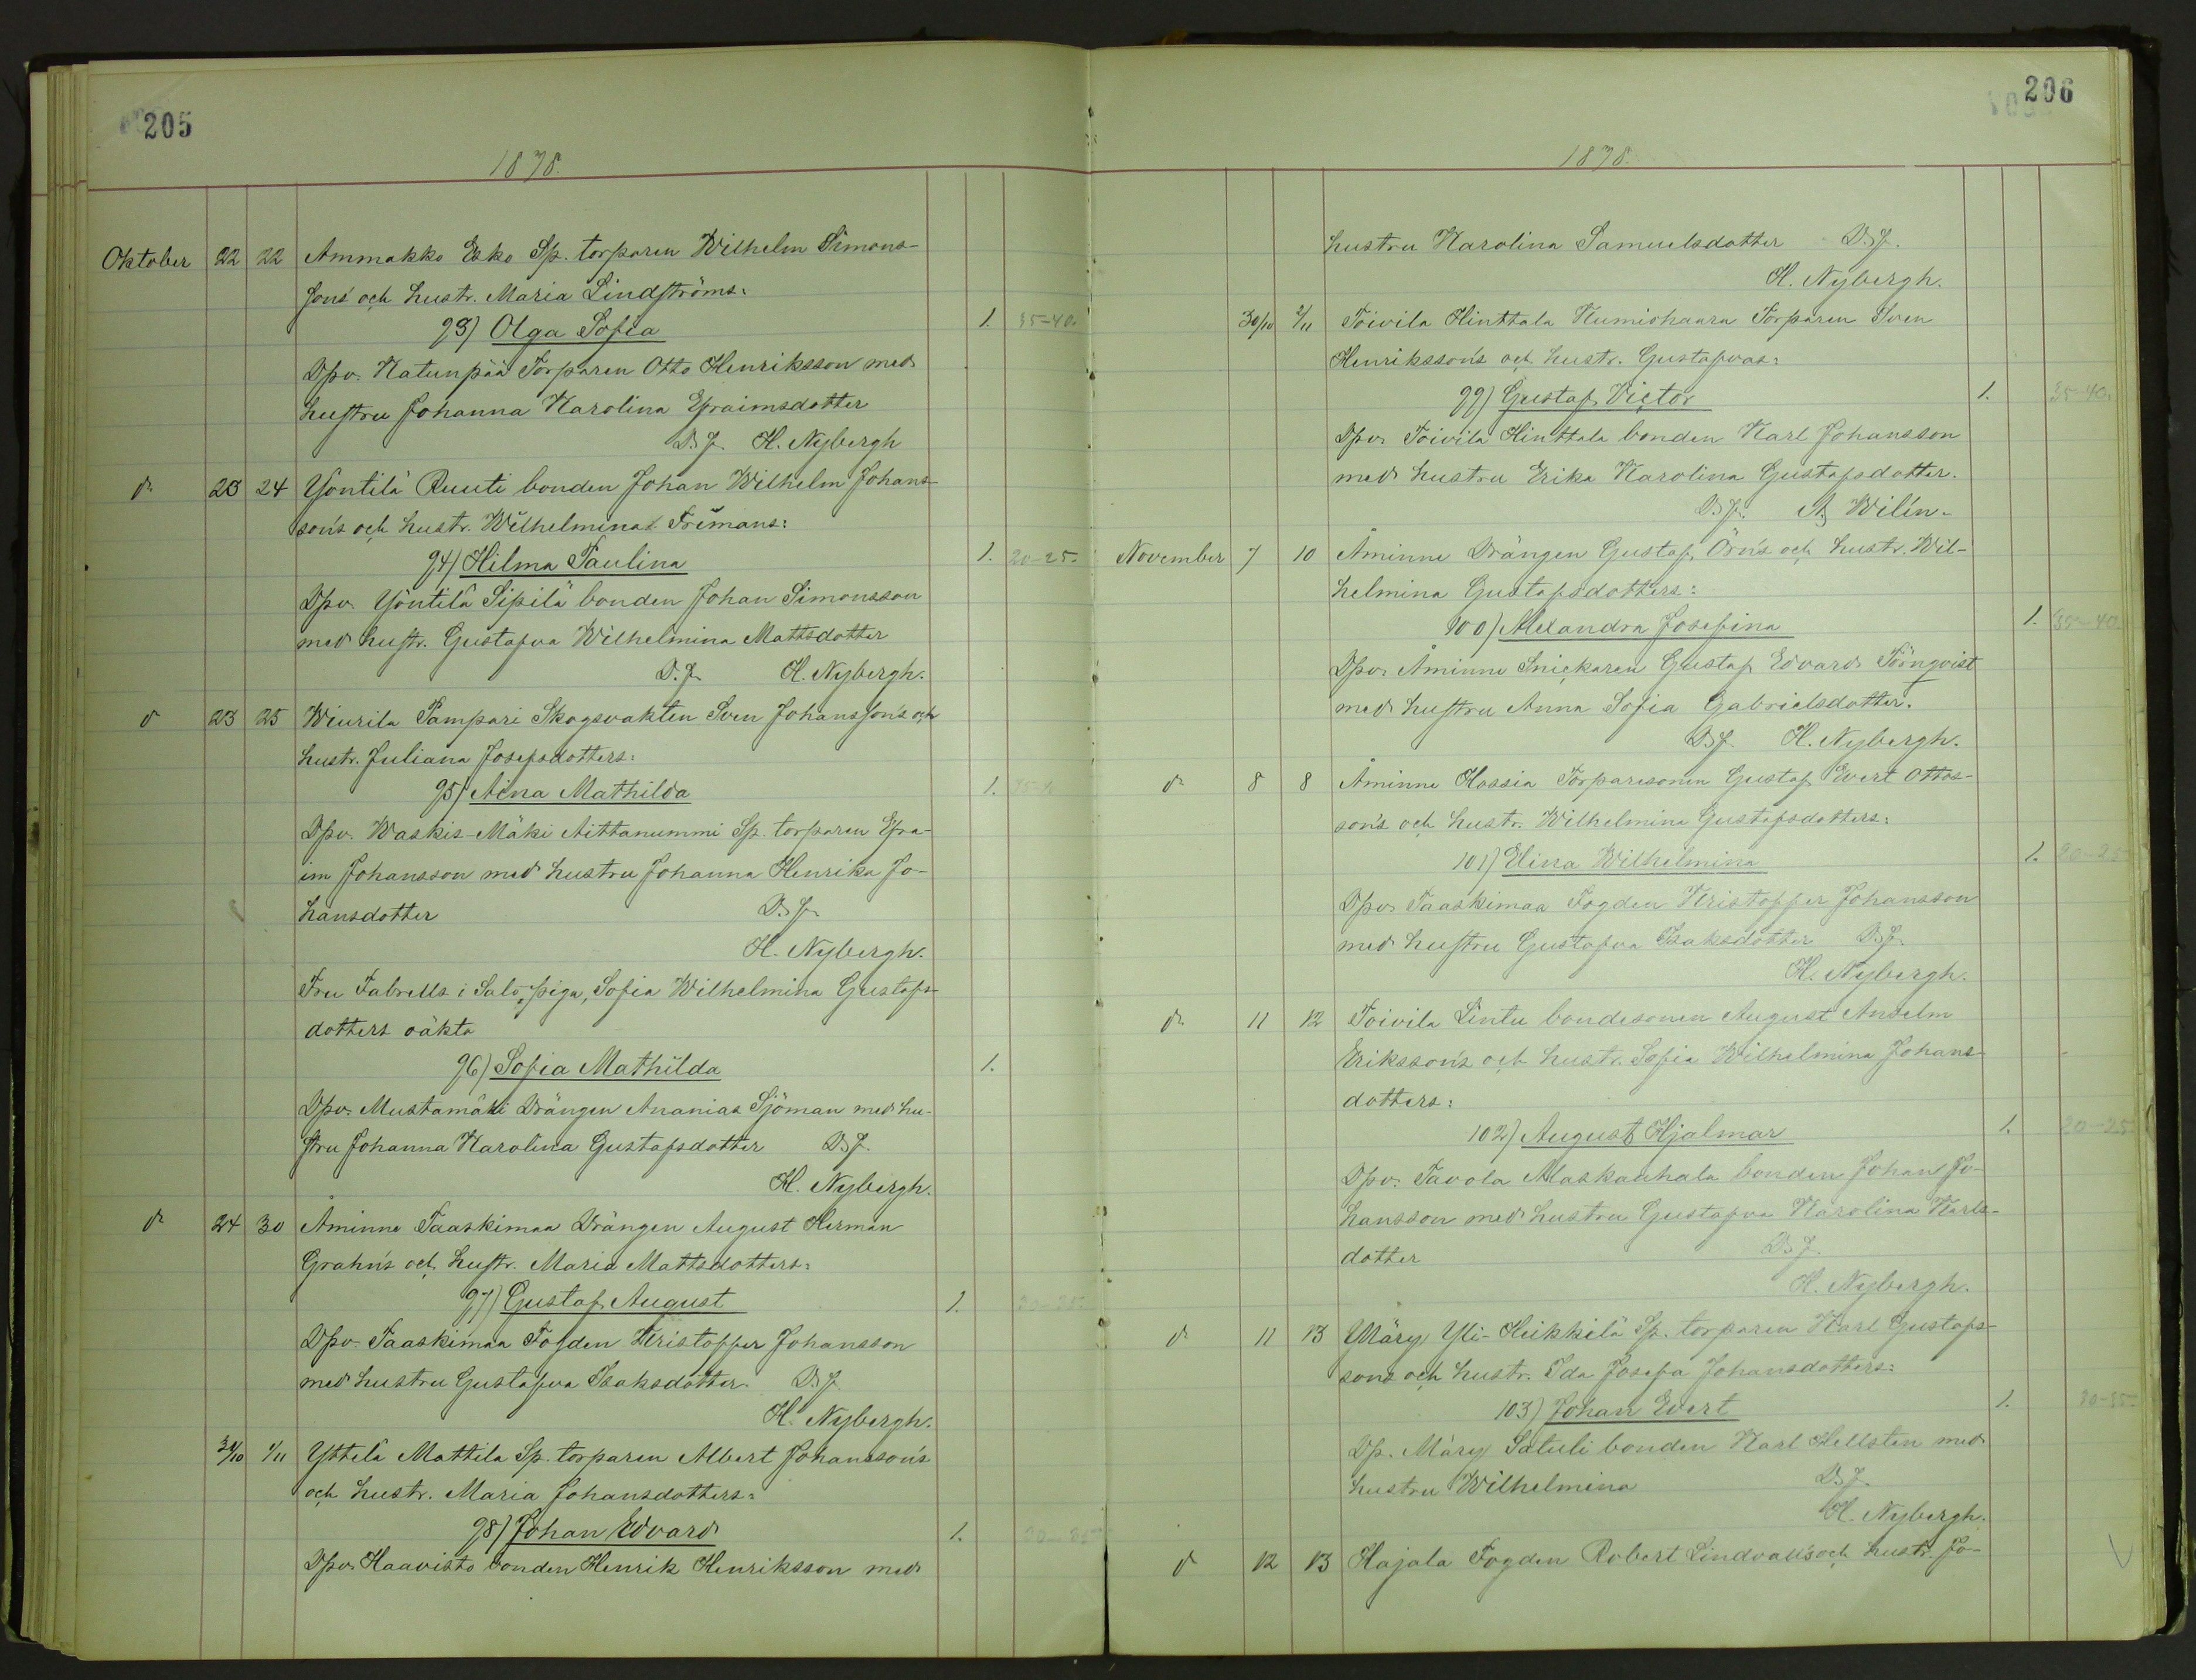 205
1878.
Oktober 22 22 Ammakko Esko Sp. torparen Wilhelm Simons-
sons och hustr. Maria Lindströms:
93) Olga Sofia 1. 35-40.
Dpv. Katunpää Torparen Otto Henriksson med
hustru Johanna Karolina Efraimsdotter
D.J. H. Nybergh
d:o 23 24 Yöntilä Ruuti bonden Johan Wilhelm Johans-
son's och hustr. Wilhelmina Frimans:
94) Hilma Paulina 1. 20-25.
Dpv. Yöntilä Sipilä bonden Johan Simonsson
med hustr. Gustafva Wilhelmina Mattsdotter
D.J. H. Nybergh.
d:o 23 25 Wiurila Pampari Skogsvakten Sven Johansson's och
hustr. Juliana Josefsdotters:
95) Aina Mathilda 1.
Dpv. Waskis-Mäki Aittanummi Sp. torparen Efra-
im Johansson med hustru Johanna Henrika Jo-
hansdotter D.J.
H. Nybergh.
Fru Fabrells i Salo, piga, Sofia Wilhelmina Gustafs-
dotters oäkta
96) Sofia Mathilda 1.
Dpv. Mustamäki Drängen Ananias Sjöman med hu-
stru Johanna Karolina Gustafsdotter D.J.
H. Nybergh.
d:o 24 30 Åminne Taaskimaa Drängen August Herman
Grahn's och hustr. Maria Mattsdotters:
97) Gustaf August 1.
Dpv. Taaskimaa Fogden Kristoffer Johansson
med hustru Gustafva Isaksdotter D.J.
H. Nybergh.
1/11 Yttelä Mattila Sp. torparen Albert Johansson's
och hustr. Maria Johansdotters:
98) Johan Edvard 1. 30-35
Dpv. Haavisto bonden Henrik Henriksson med
206
1878.
hustru Karolina Samuelsdotter D.J.
H. Nybergh.
30/10 2/11 Toivila Hinttala Kumiohaara Torparen Sven
Henriksson's och hustr. Gustafvas:
99) Gustaf Victor 1. 35-40.
Dpv. Toivila Hinttala bonden Karl Johansson
med hustru Erika Karolina Gustafsdotter.
D.J. A. Wilén.
November 7 10 Åminne Drängen Gustaf Örn's och hustr. Wil-
helmina Gustafsdotters:
100) Alexandra Josefina 1. 35-40
Dpv. Åminne Snickaren Gustaf Edvard Törnqvist
med hustru Anna Sofia Gabrielsdotter.
D.J. H. Nybergh.
d:o 8 8 Åminne Kossia Torparesonen Gustaf Evert Ottos-
son's och hustr. Wilhelmina Gustafsdotters:
101) Elina Wilhelmina 1. 20-25
Dpv. Taaskimaa Fogden Kristoffer Johansson
med hustru Gustafva Isaksdotter D.J.
H. Nybergh.
d:o 11 12 Toivila Lintu bondesonen August Anselm
Eriksson's och hustr. Sofia Wilhelmina Johans-
dotters:
102) August Hjalmar 1. 20-25
Dpv. Tavola Alaskauhala bonden Johan Jo-
hansson med hustru Gustafva Karolina Karls-
dotter D.J.
H. Nybergh.
d:o 11 13 Märy Yli-Heikkilä Sp. torparen Karl Gustafs-
sons och hustr. Ida Josefa Johansdotters:
103) Johan Evert 1. 30-35
Dp. Märy Satuli bonden Karl Hellsten med
hustru Wilhelmina D.J.
H. Nybergh.
d:o 12 13 Hajala Fogden Robert Lindvall's och hustr. Jo-